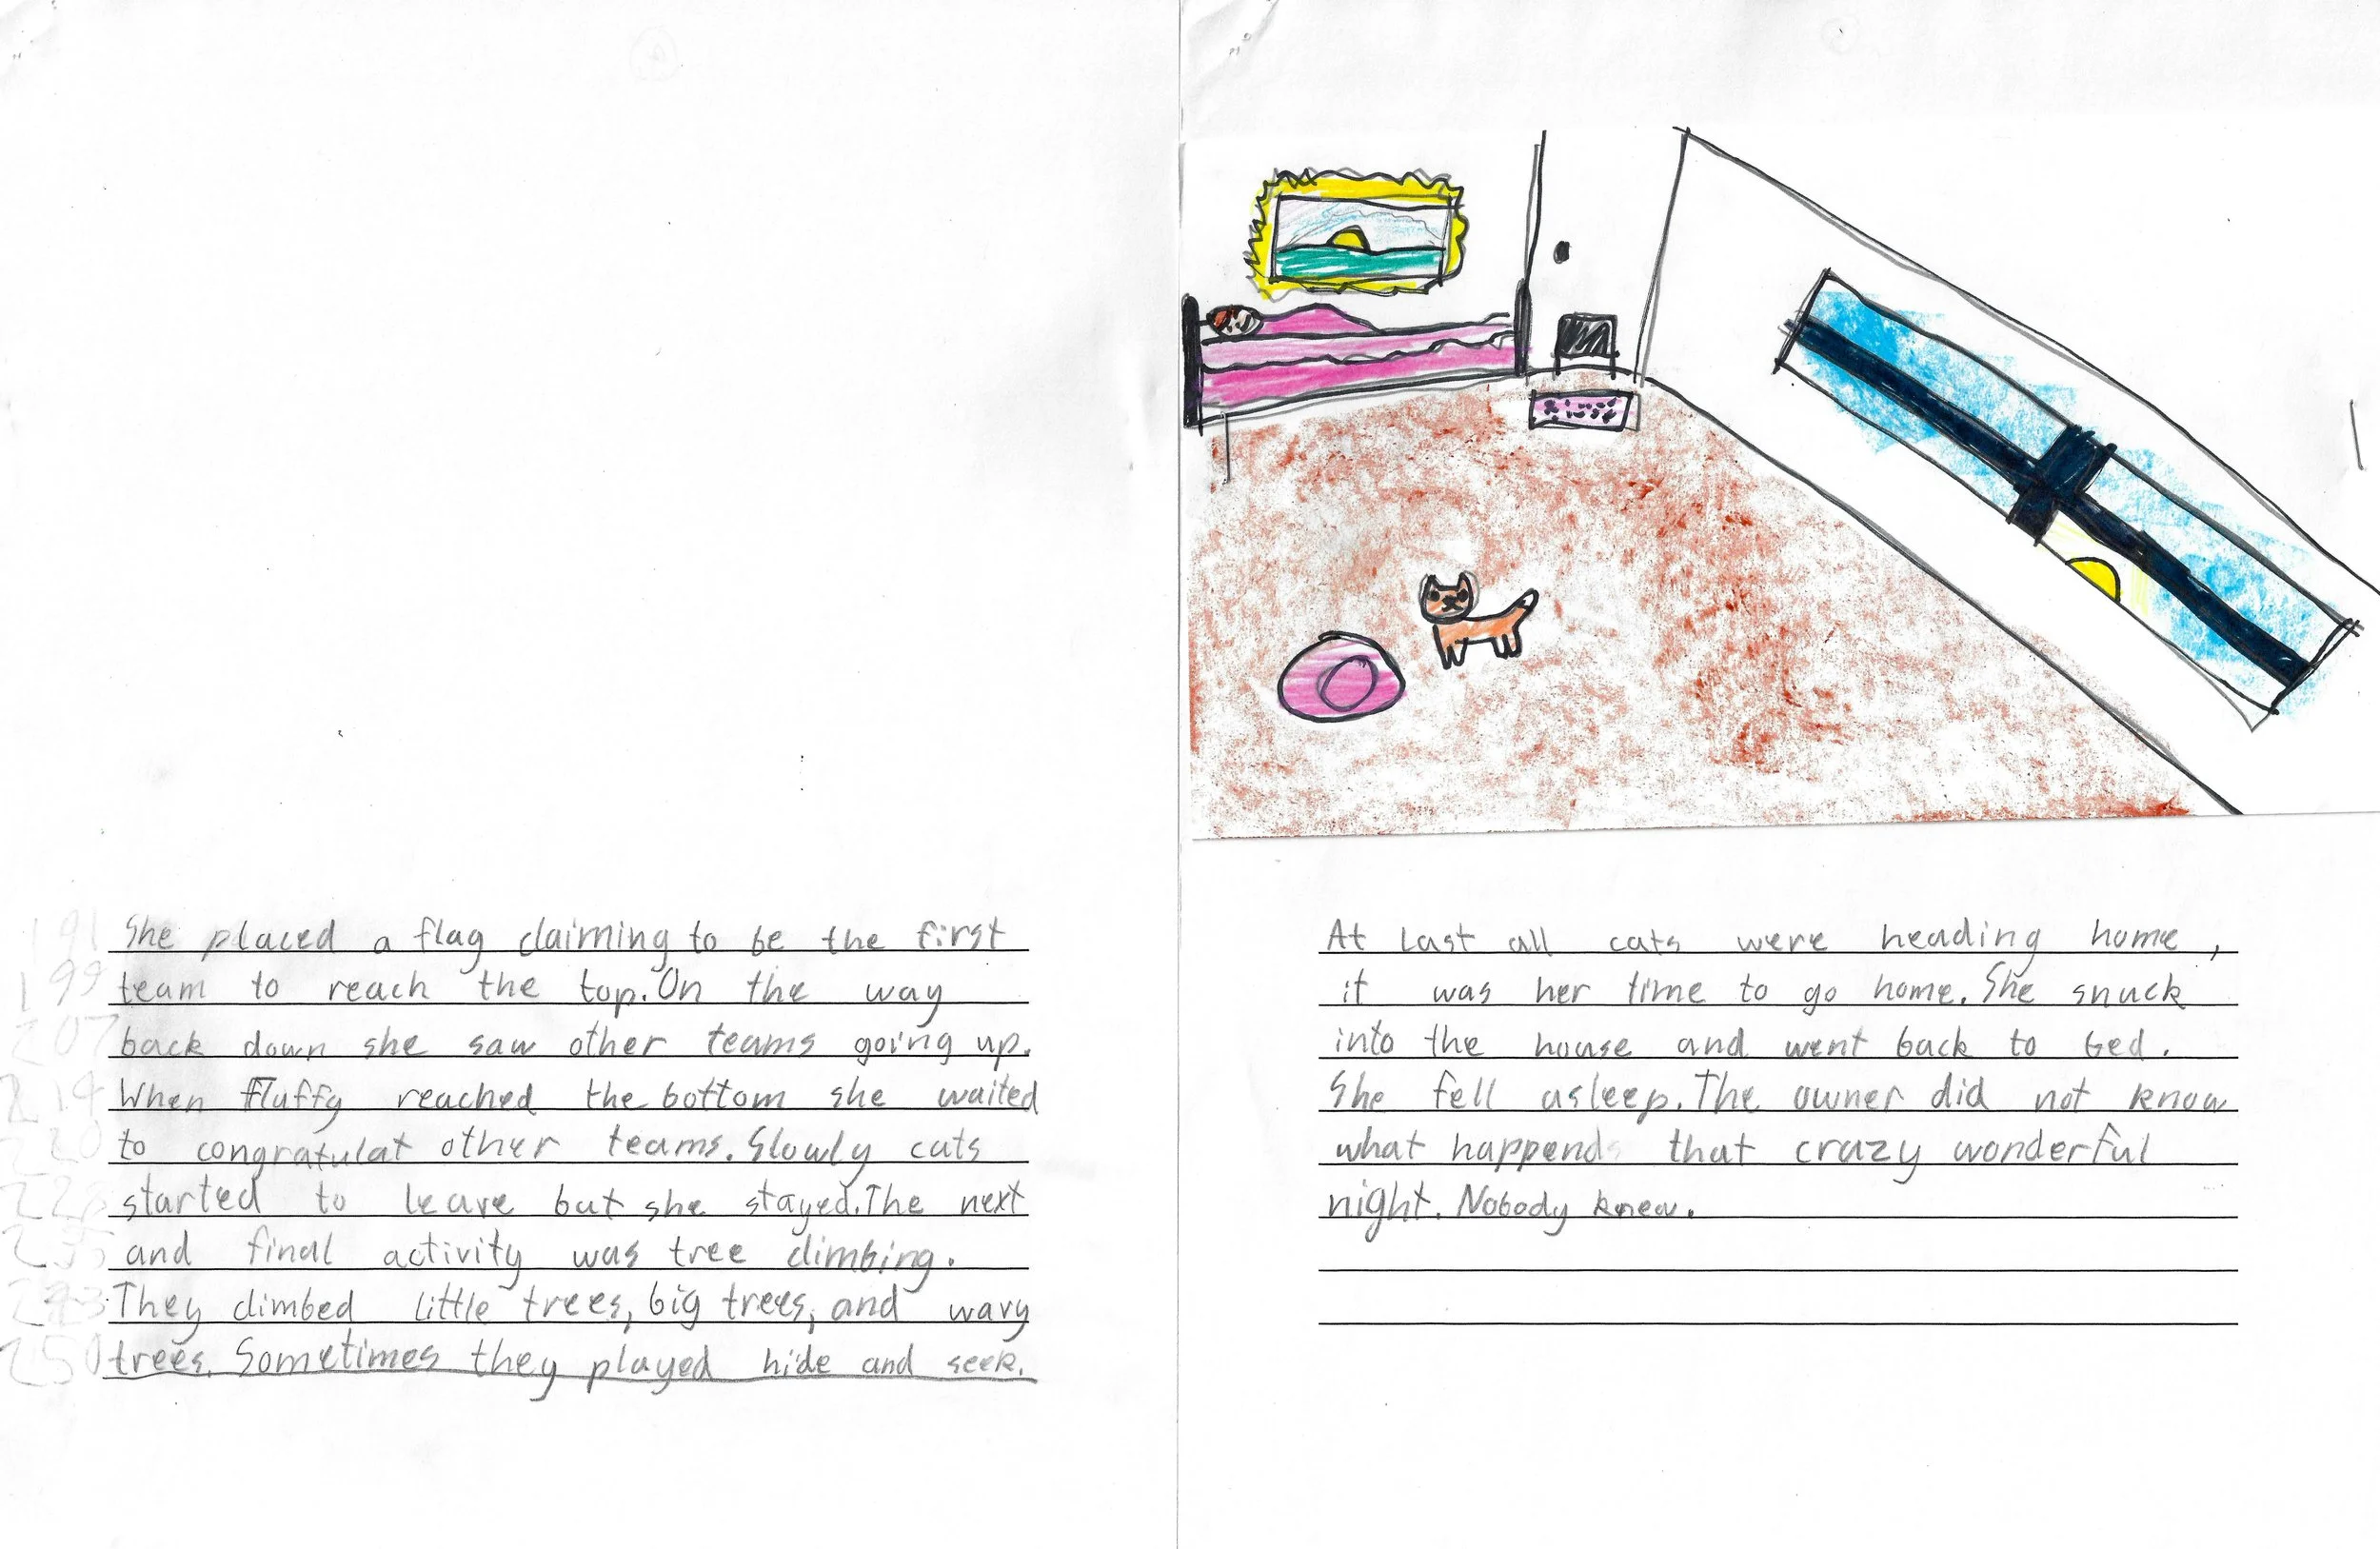 191 She placed a flag claiming to be the first
199 team to reach the top. On the way
207 back down she saw other teams going up.
214 When Fluffy reached the bottom she waited
220 to congratulat other teams. Slowly cats
228 started to leave but she stayed. The next
235 and final activity was tree climbing.
243 They climbed little trees, big trees, and wavy
250 trees. Sometimes they played hide and seek.
At last all cats were heading home,
it was her time to go home. She snuck
into the house and went back to bed.
She fell asleep. The owner did not know
what happends that crazy wonderful
night. Nobody knew.